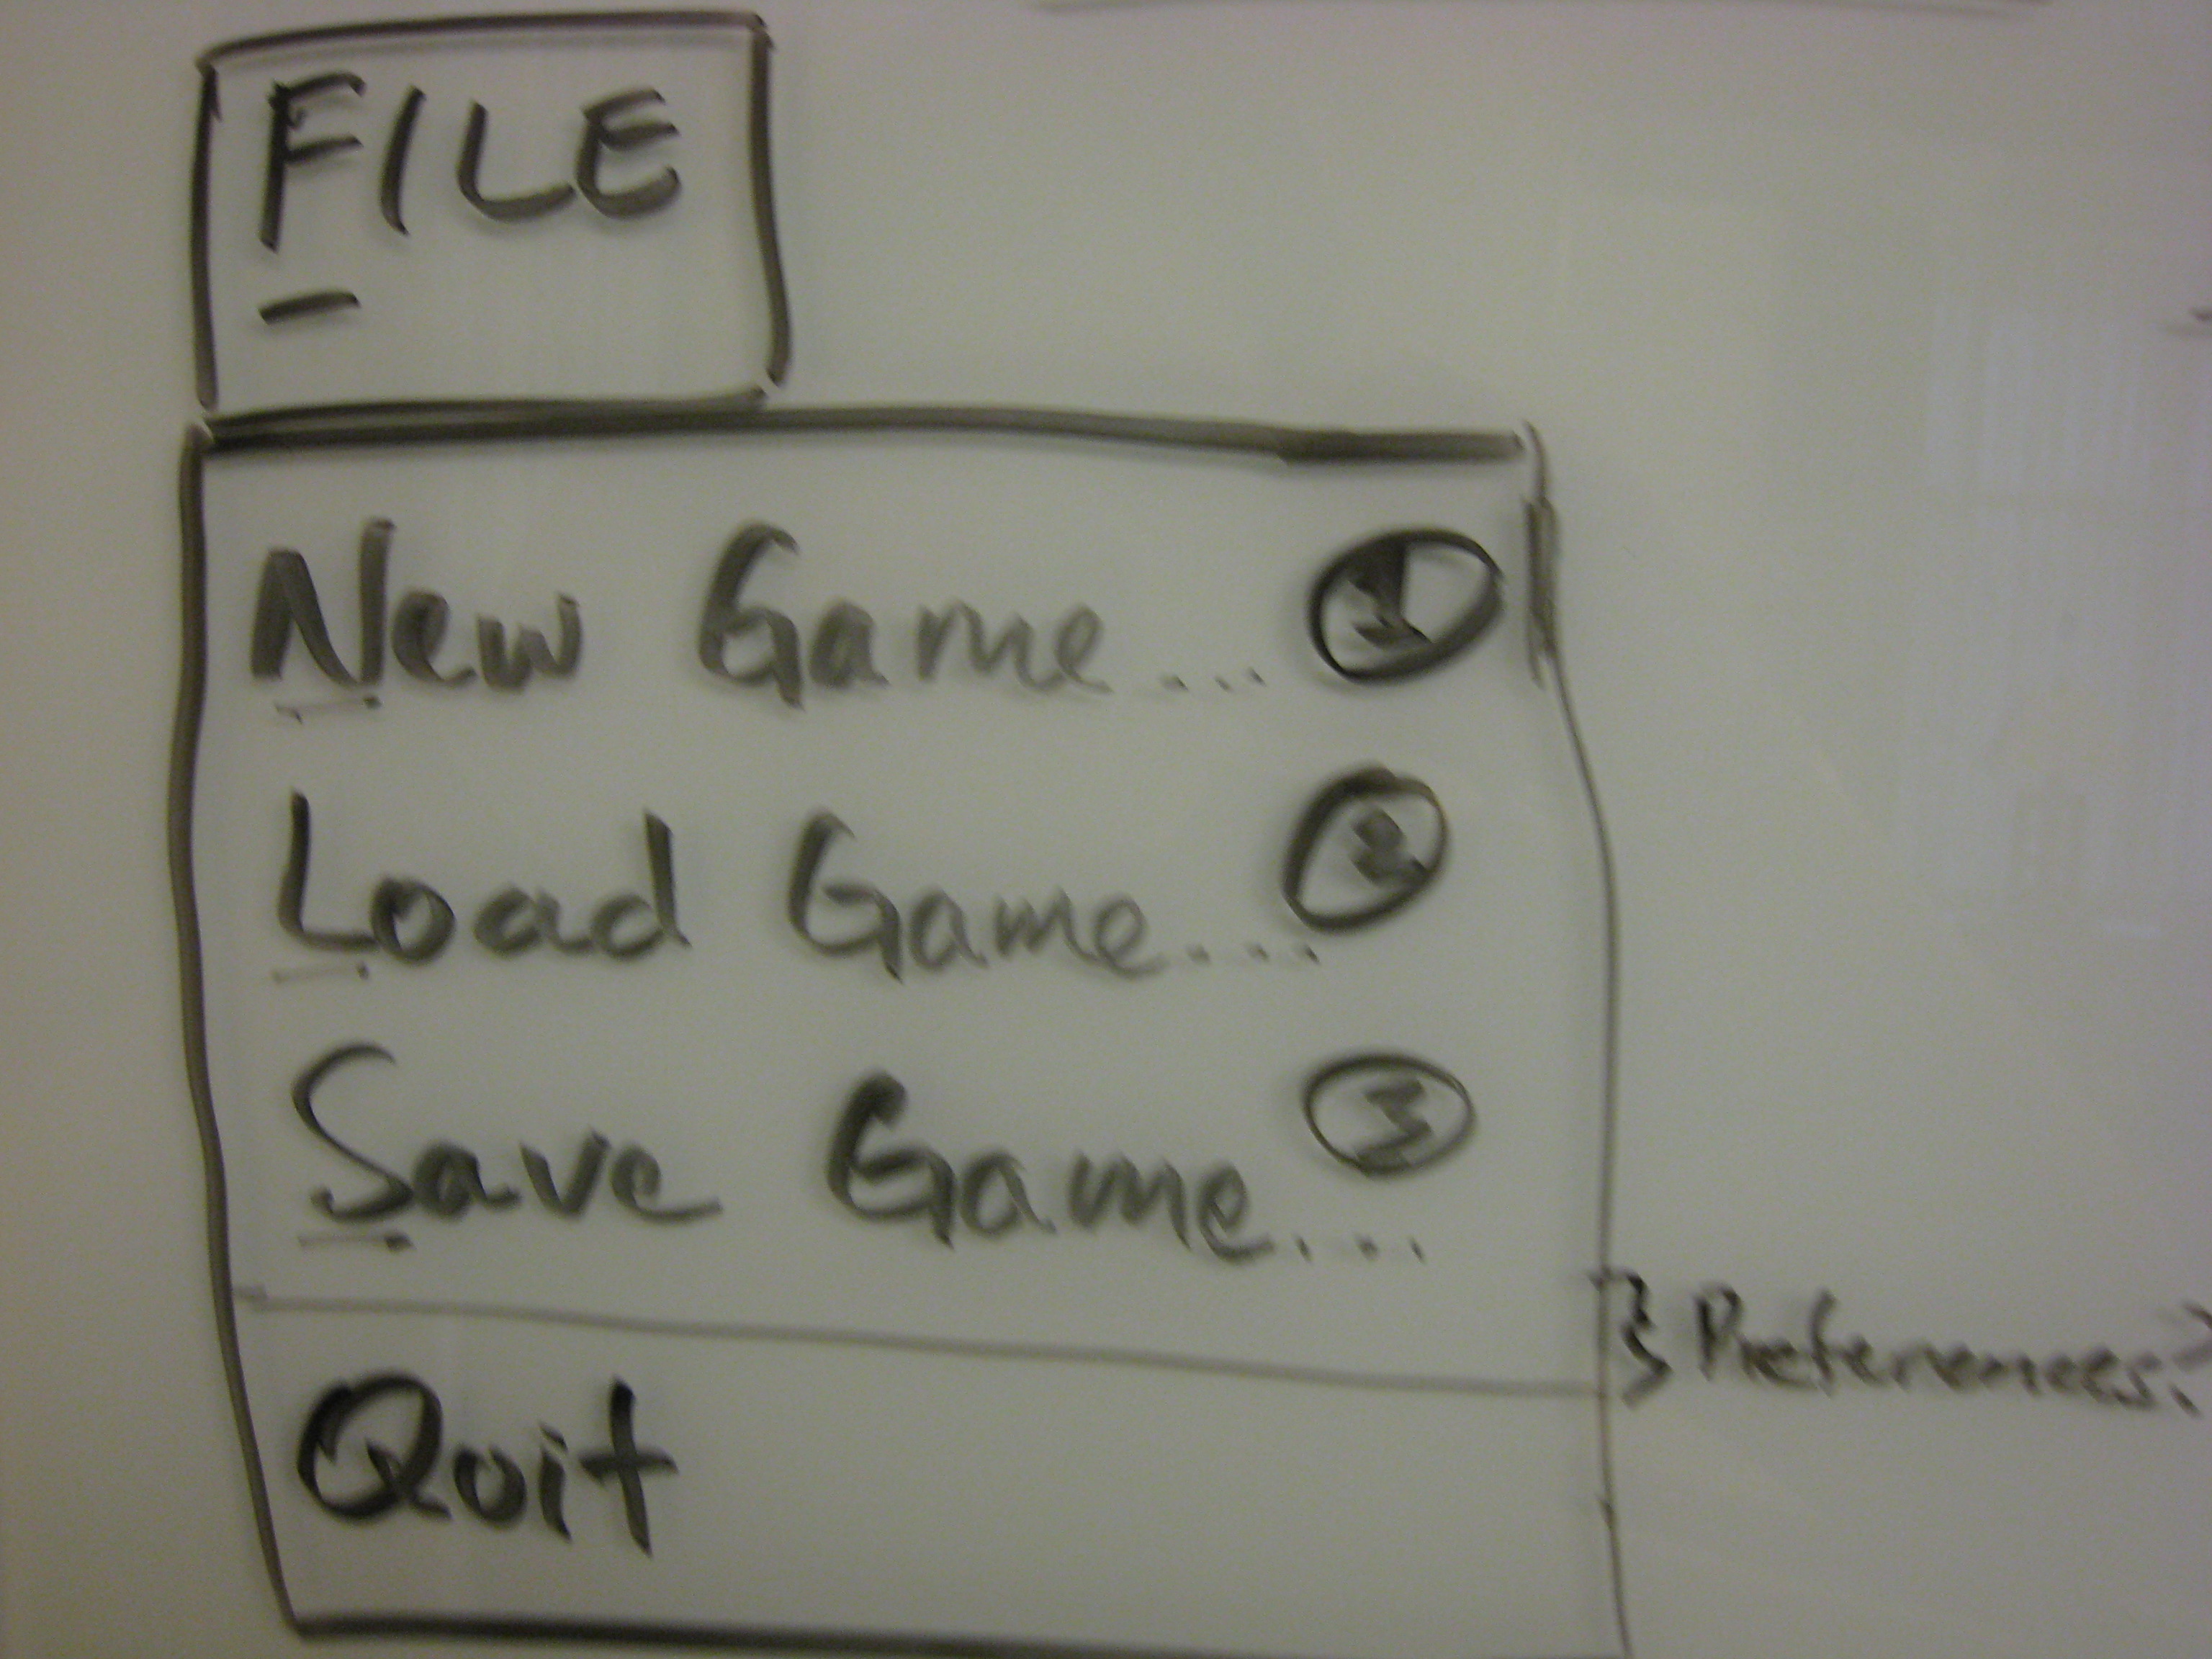 FILE
New Game... 1
Load Game.... 2
Save Game... 3
} Preferences?
Quit